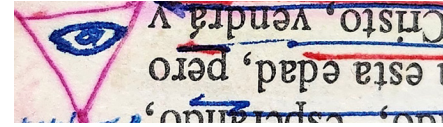 do, esperando,
a esta edad, pero
Cristo, vendrá y